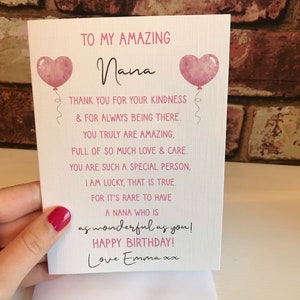 TO MY AMAZING
Nana
THANK YOU FOR YOUR KINDNESS
& FOR ALWAYS BEING THERE.
YOU TRULY ARE AMAZING,
FULL OF SO MUCH LOVE & CARE.
YOU ARE SUCH A SPECIAL PERSON,
I AM LUCKY, THAT IS TRUE.
FOR IT'S RARE TO HAVE
A NANA WHO IS
as wonderful as you!
HAPPY BIRTHDAY!
Love Emma xx